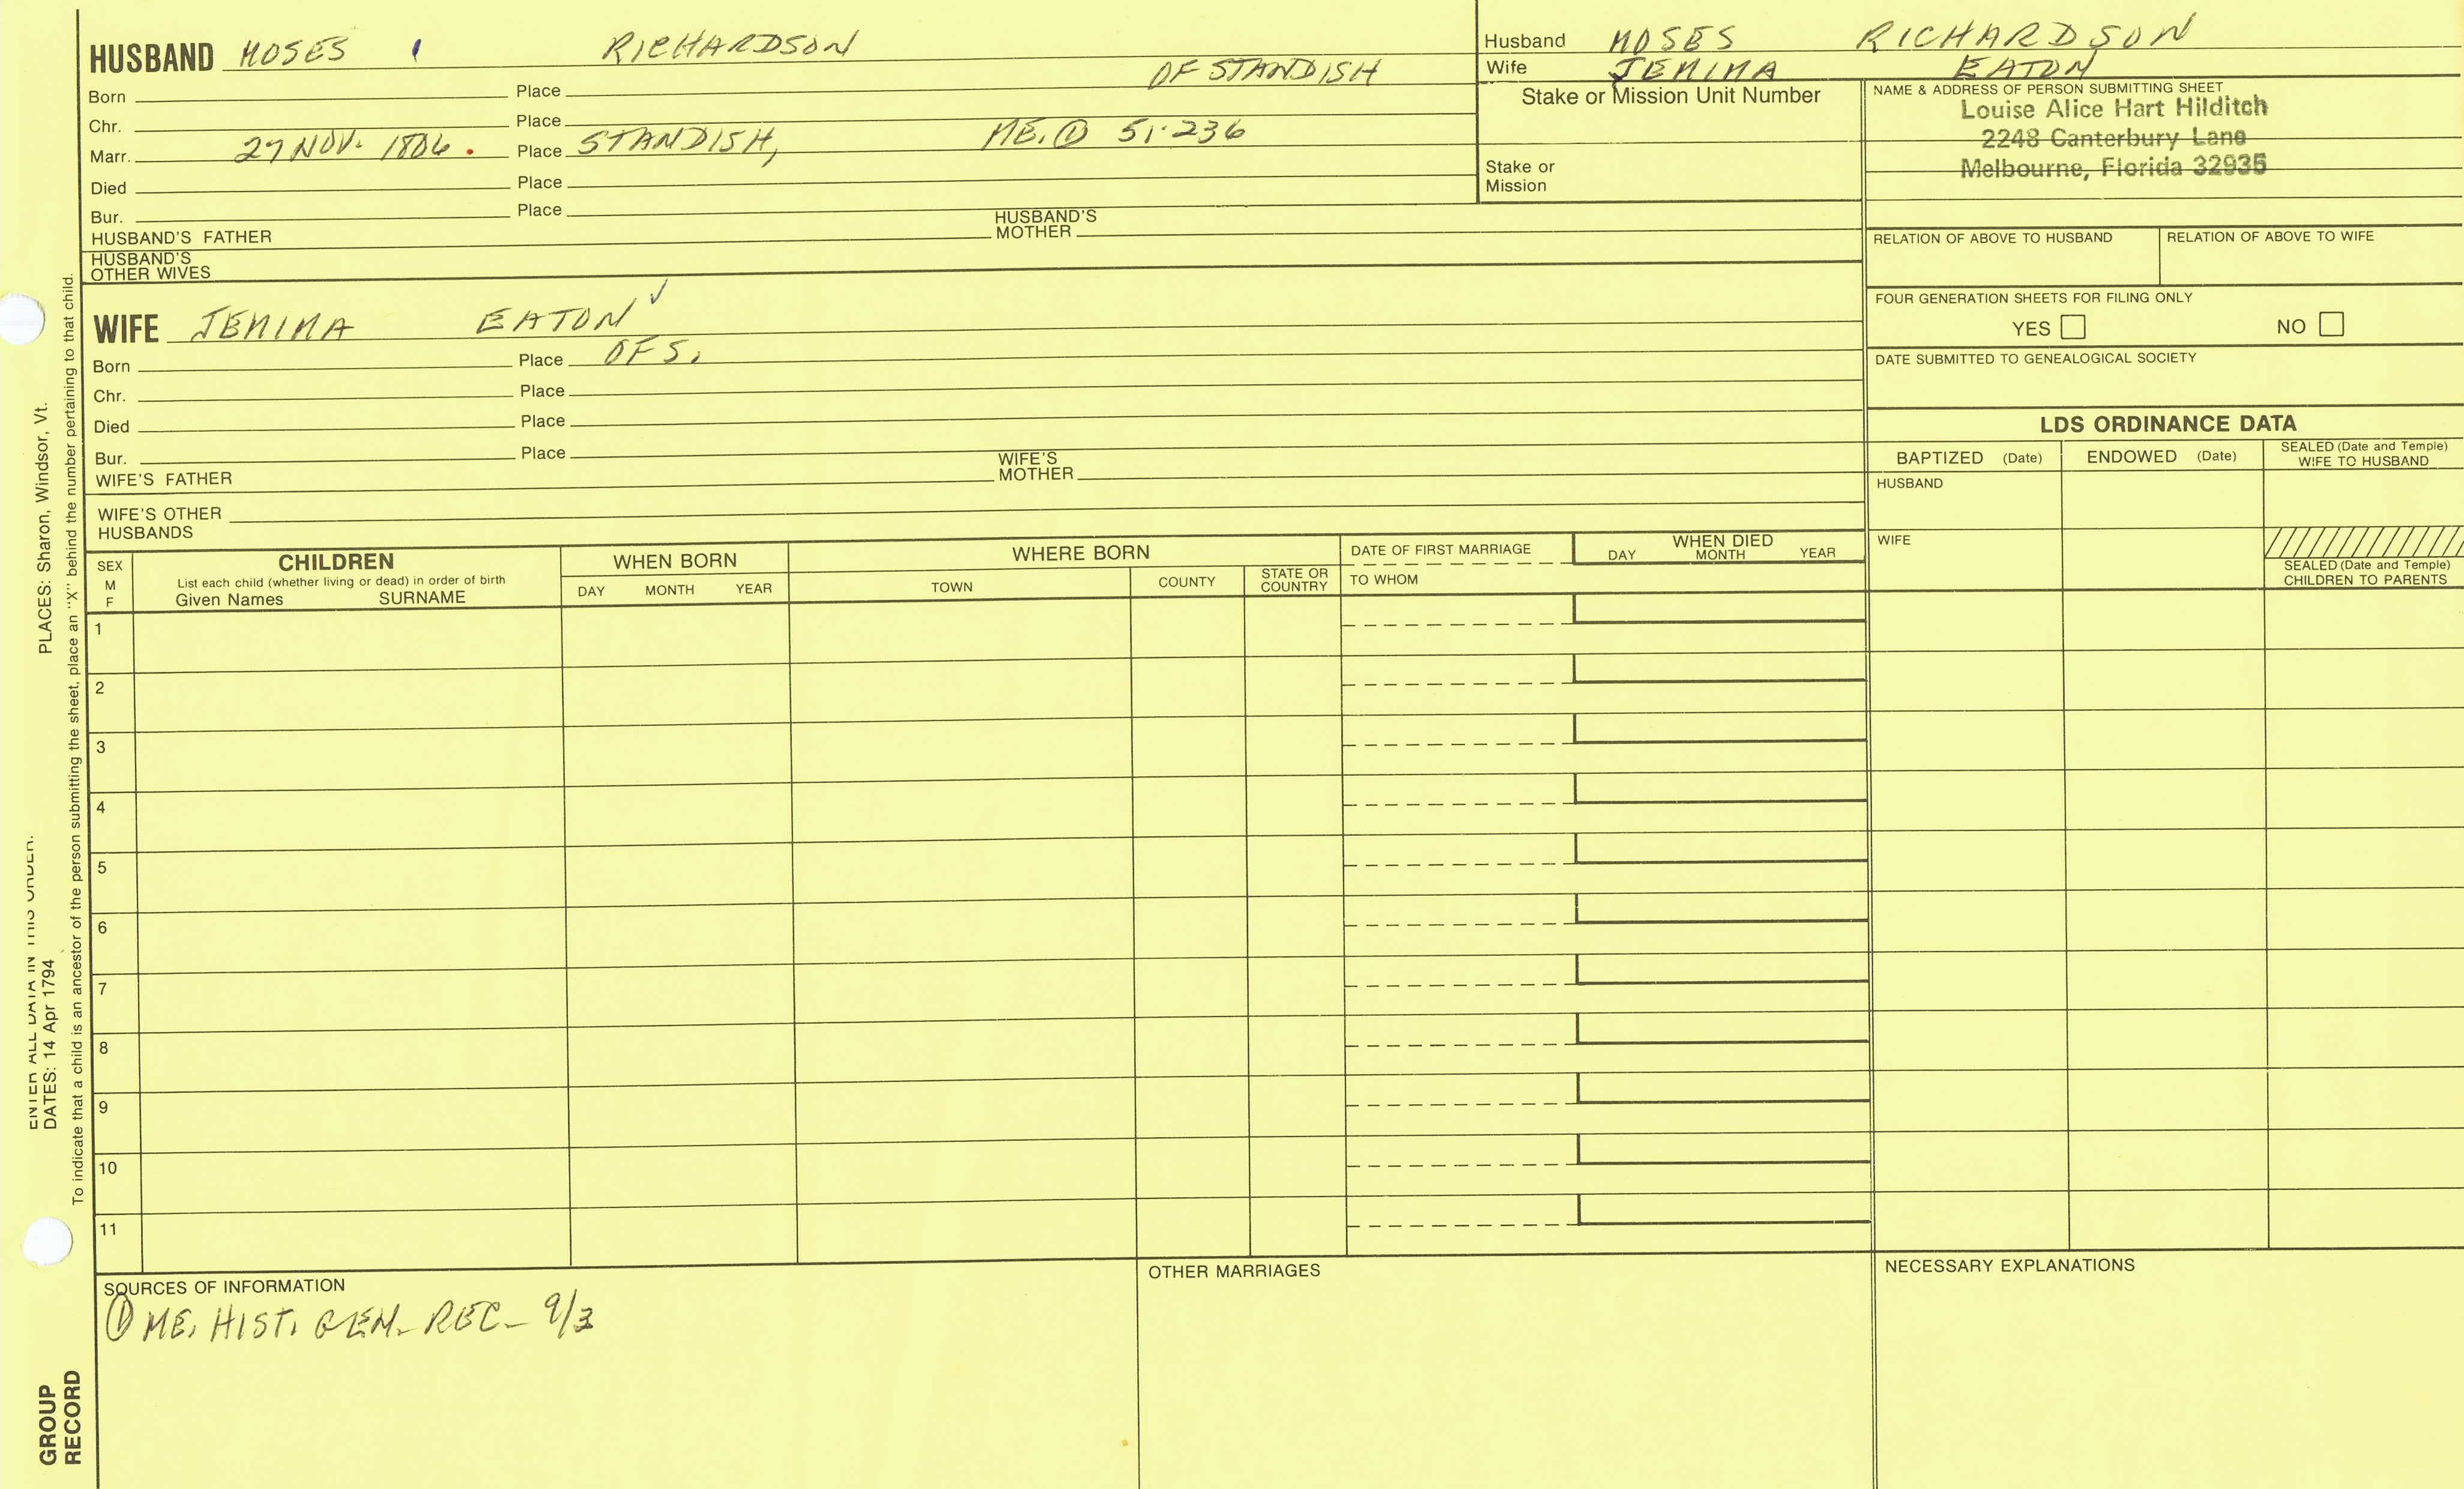 HUSBAND MOSES RICHARDSON
OF STANDISH
Born Place
Chr. Place
Marr. 27 NOV. 1806. Place STANDISH, ME. ① 51-236
Died Place
Bur. Place
HUSBAND'S FATHER HUSBAND'S MOTHER
HUSBAND'S OTHER WIVES
WIFE JEMIMA EATON ✓
Born Place OF S.
Chr. Place
Died Place
Bur. Place
WIFE'S FATHER WIFE'S MOTHER
WIFE'S OTHER HUSBANDS
Husband MOSES RICHARDSON
Wife JEMIMA EATON
Stake or Mission Unit Number
Stake or
Mission
NAME & ADDRESS OF PERSON SUBMITTING SHEET
Louise Alice Hart Hilditch
2248 Canterbury Lane
Melbourne, Florida 32935
RELATION OF ABOVE TO HUSBAND RELATION OF ABOVE TO WIFE
FOUR GENERATION SHEETS FOR FILING ONLY
YES NO
DATE SUBMITTED TO GENEALOGICAL SOCIETY
LDS ORDINANCE DATA
BAPTIZED (Date) ENDOWED (Date) SEALED (Date and Temple) WIFE TO HUSBAND
HUSBAND
WIFE
SEALED (Date and Temple)
CHILDREN TO PARENTS
SEX
M
F
CHILDREN
List each child (whether living or dead) in order of birth
Given Names SURNAME
WHEN BORN
DAY MONTH YEAR
WHERE BORN
TOWN COUNTY STATE OR COUNTRY
DATE OF FIRST MARRIAGE
TO WHOM
WHEN DIED
DAY MONTH YEAR
1
2
3
4
5
6
7
8
9
10
11
SOURCES OF INFORMATION
① ME. HIST. GEN. REC. 9/3
OTHER MARRIAGES
NECESSARY EXPLANATIONS
ENTER ALL DATA IN THIS ORDER:
DATES: 14 Apr 1794 PLACES: Sharon, Windsor, Vt.
To indicate that a child is an ancestor of the person submitting the sheet, place an "X" behind the number pertaining to that child.
GROUP
RECORD